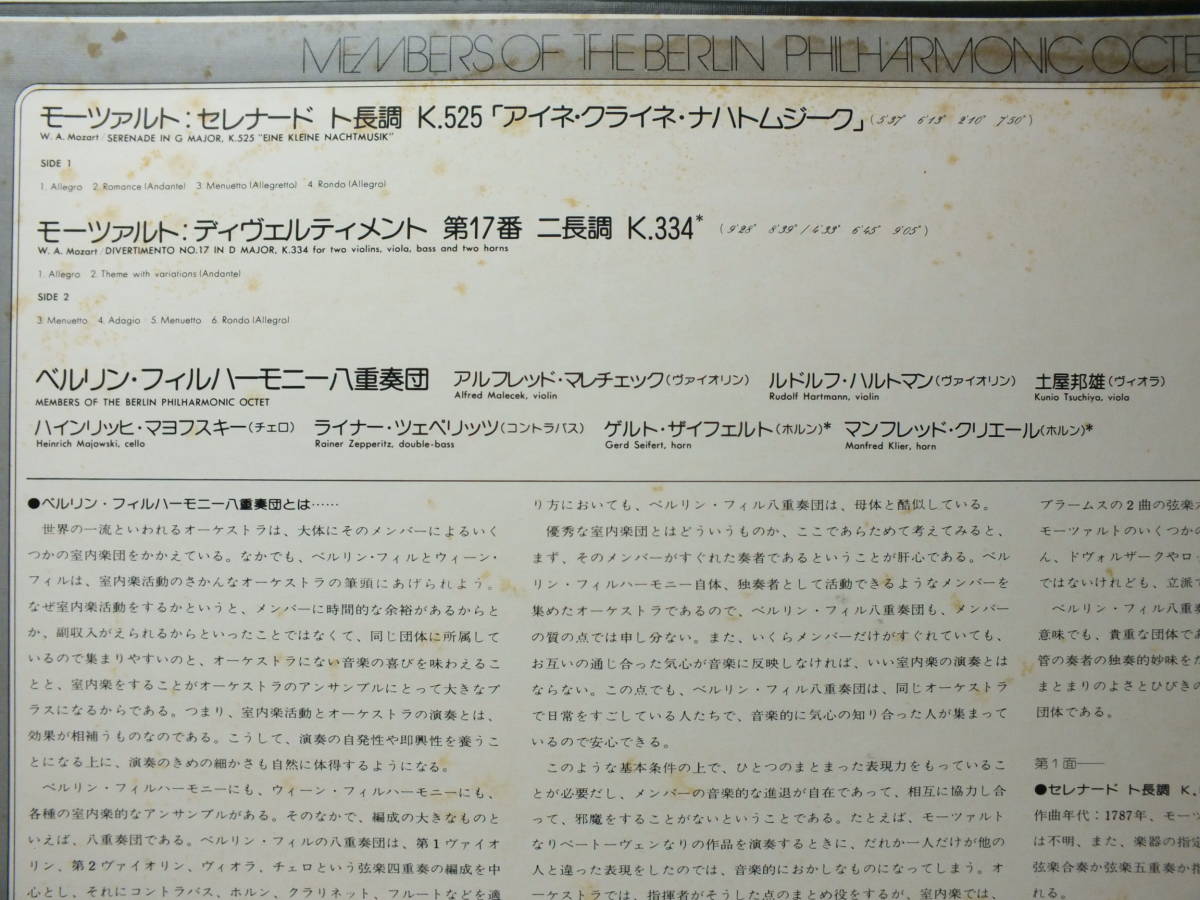 MEMBERS OF THE BERLIN PHILHARMONIC OCTE
モーツァルト:セレナード ト長調 K.525「アイネ・クライネ・ナハトムジーク」(5'37" 6'13" 2'10" 7'50")
W. A. Mozart/SERENADE IN G MAJOR, K.525 "EINE KLEINE NACHTMUSIK"
SIDE 1
1. Allegro 2. Romance (Andante) 3. Menuetto (Allegretto) 4. Rondo (Allegro)
モーツァルト:ディヴェルティメント 第17番 ニ長調 K.334* (9'28" 8'39"/4'33" 6'45" 9'05")
W. A. Mozart/DIVERTIMENTO NO.17 IN D MAJOR, K.334 for two violins, viola, bass and two horns
1. Allegro 2. Theme with variations (Andante)
SIDE 2
3. Menuetto 4. Adagio 5. Menuetto 6. Rondo (Allegro)
ベルリン・フィルハーモニー八重奏団 アルフレッド・マレチェック(ヴァイオリン) ルドルフ・ハルトマン(ヴァイオリン) 土屋邦雄(ヴィオラ)
MEMBERS OF THE BERLIN PHILHARMONIC OCTET Alfred Malecek, violin Rudolf Hartmann, violin Kunio Tsuchiya, viola
ハインリッヒ・マヨフスキー(チェロ) ライナー・ツェペリッツ(コントラバス) ゲルト・ザイフェルト(ホルン)* マンフレッド・クリエール(ホルン)*
Heinrich Majowski, cello Rainer Zepperitz, double-bass Gerd Seifert, horn Manfred Klier, horn
●ベルリン・フィルハーモニー八重奏団とは……
世界の一流といわれるオーケストラは、大体にそのメンバーによるいく
つかの室内楽団をかかえている。なかでも、ベルリン・フィルとウィーン・
フィルは、室内楽活動のさかんなオーケストラの筆頭にあげられよう。
なぜ室内楽活動をするかというと、メンバーに時間的な余裕があるからと
か、副収入がえられるからといったことではなくて、同じ団体に所属して
いるので集まりやすいのと、オーケストラにない音楽の喜びを味わえるこ
とと、室内楽をすることがオーケストラのアンサンブルにとって大きなプ
ラスになるからである。つまり、室内楽活動とオーケストラの演奏とは、
効果が相補うものなのである。こうして、演奏の自発性や即興性を養うこ
とになる上に、演奏のきめの細かさも自然に体得するようになる。
ベルリン・フィルハーモニーにも、ウィーン・フィルハーモニーにも、
各種の室内楽的なアンサンブルがある。そのなかで、編成の大きなものと
いえば、八重奏団である。ベルリン・フィルの八重奏団は、第1ヴァイオ
リン、第2ヴァイオリン、ヴィオラ、チェロという弦楽四重奏の編成を中
心とし、それにコントラバス、ホルン、クラリネット、フルートなどを適
り方においても、ベルリン・フィル八重奏団は、母体と酷似している。
優秀な室内楽団とはどういうものか、ここであらためて考えてみると、
まず、そのメンバーがすぐれた奏者であるということが肝心である。ベル
リン・フィルハーモニー自体、独奏者として活動できるようなメンバーを
集めたオーケストラであるので、ベルリン・フィル八重奏団も、メンバー
の質の点では申し分ない。また、いくらメンバーだけがすぐれていても、
お互いの通じ合った気心が音楽に反映しなければ、いい室内楽の演奏とは
ならない。この点でも、ベルリン・フィル八重奏団は、同じオーケストラ
で日常をすごしている人たちで、音楽的に気心の知り合った人が集まって
いるので安心できる。
このような基本条件の上で、ひとつのまとまった表現力をもっているこ
とが必要だし、メンバーの音楽的な進退が自在であって、相互に協力し合
って、邪魔をすることがないということである。たとえば、モーツァルト
なりベートーヴェンなりの作品を演奏するときに、だれか一人だけが他の
人と違った表現をしたのでは、音楽的におかしなものになってしまう。オ
ーケストラでは、指揮者がそうした点のまとめ役をするが、室内楽では、
ブラームスの2曲の弦楽
モーツァルトのいくつか
ん、ドヴォルザークやロッ
ではないけれども、立派で
ベルリン・フィル八重奏
意味でも、貴重な団体であ
管の奏者の独奏的妙味をた
まとまりのよさとひびきの
団体である。
第1面──
●セレナード ト長調 K.
作曲年代:1787年、モーツ
は不明、また、楽器の指定
弦楽合奏か弦楽五重奏か指
れる。